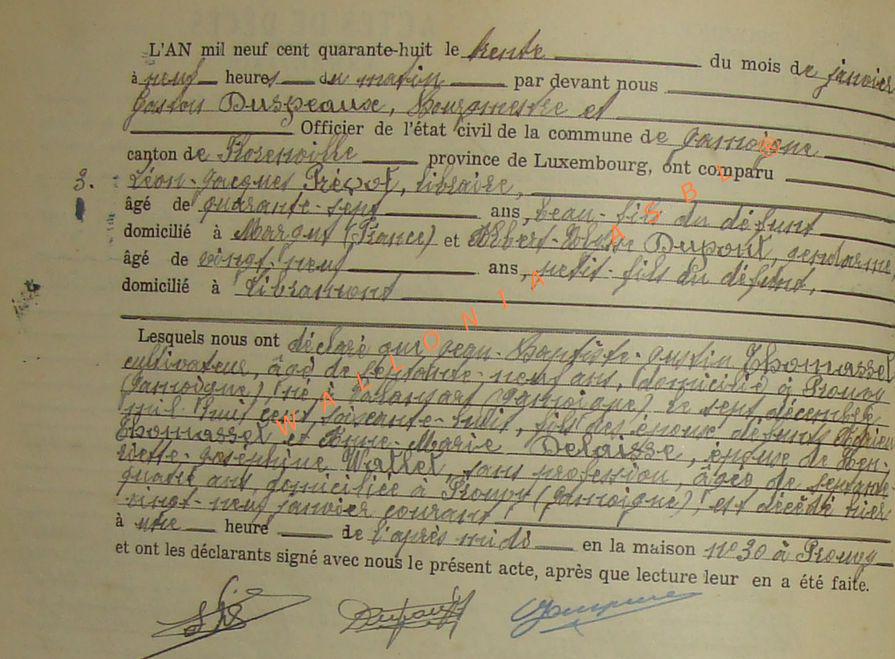 L'AN mil neuf cent quarante-huit le trente du mois de janvier
à neuf heures du matin par devant nous
Gaston Duspeaux, Bourgmestre et
Officier de l'état civil de la commune de Jamoigne
canton de Florenville province de Luxembourg, ont comparu
3. Léon-Jacques Prévot, libraire,
âgé de quarante-sept ans, beau-fils du défunt
domicilié à Margut (France) et Albert- Dupont, gendarme
âgé de vingt-neuf ans, petit-fils du défunt,
domicilié à Libramont
Lesquels nous ont déclaré que Jean-Baptiste-Justin Thomasset
cultivateur, âgé de septante-neuf ans, domicilié à Prouvy
(Jamoigne), né à (Jamoigne) le sept décembre
mil huit cent soixante-huit, fils des époux défunts Adrien
Thomasset et Anne-Marie Delaisse, époux de Hen-
riette-Joséphine Wattet, sans profession, âgée de septante-
quatre ans domiciliée à Prouvy (Jamoigne), est décédé hier
vingt-neuf janvier courant
à une heure de l'après midi en la maison n°30 à Prouvy
et ont les déclarants signé avec nous le présent acte, après que lecture leur en a été faite.
WALLONIA ASBL